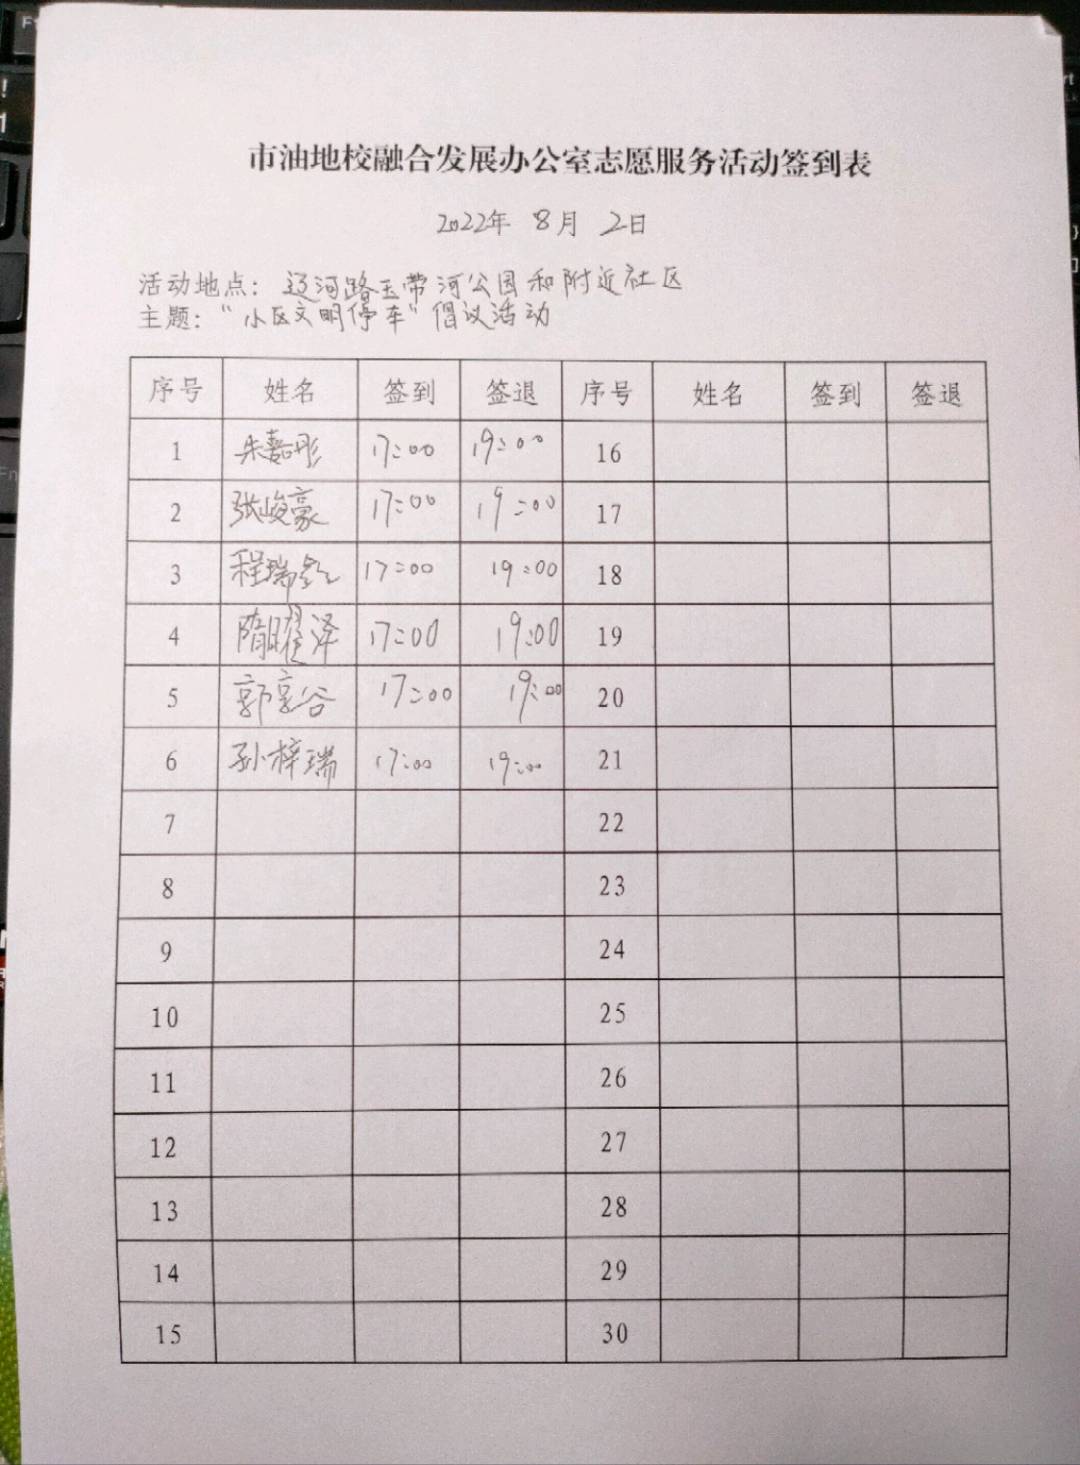 市油地校融合发展办公室志愿服务活动签到表
2022年 8月 2日
活动地点：辽河路玉带河公园和附近社区
主题：“小区文明停车”倡议活动
序号 姓名 签到 签退 序号 姓名 签到 签退
1 朱嘉彤 17:00 19:00 16
2 张峻豪 17:00 19:00 17
3 程瑞 17:00 19:00 18
4 隋曜泽 17:00 19:00 19
5 郭享谷 17:00 19:00 20
6 孙梓瑞 17:00 19:00 21
7 22
8 23
9 24
10 25
11 26
12 27
13 28
14 29
15 30